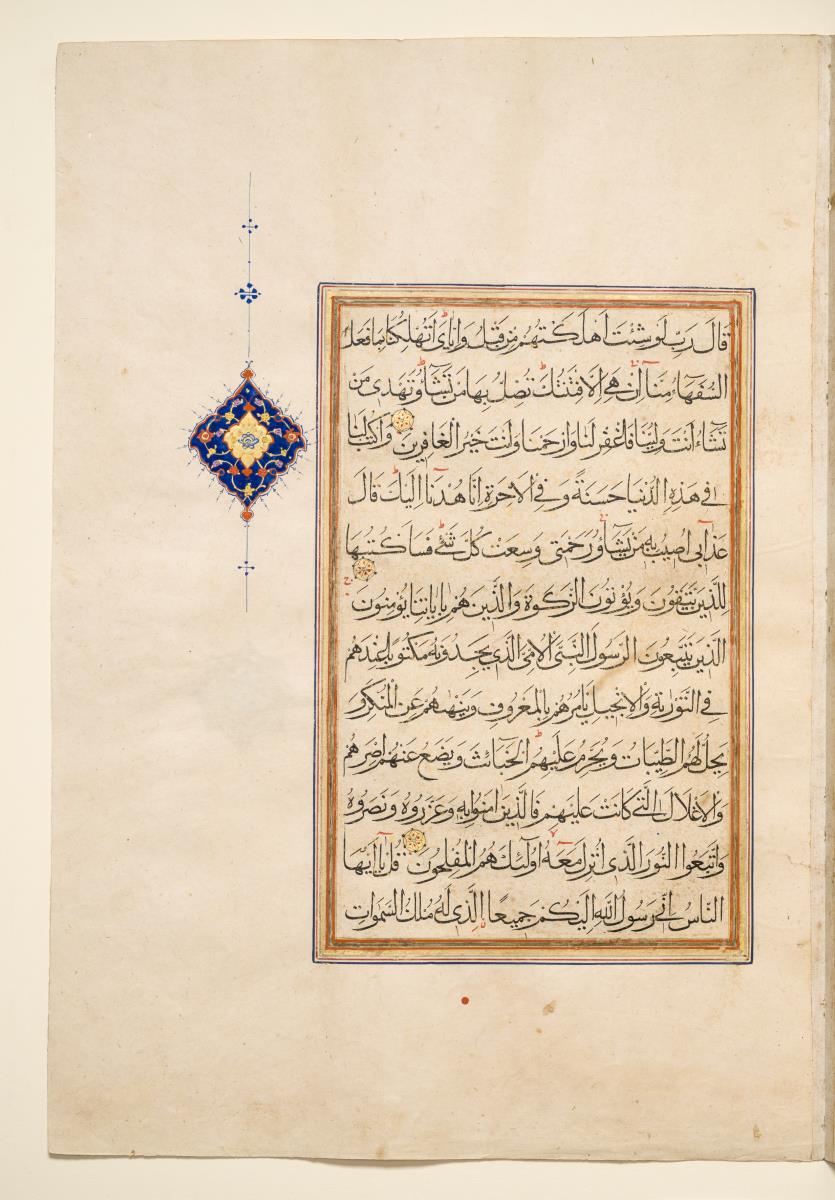 قَالَ رَبِّ لَوْ شِئْتَ أَهْلَكْتَهُمْ مِنْ قَبْلُ وَإِيَّايَ أَتُهْلِكُنَا بِمَا فَعَلَ
السُّفَهَآءُ مِنَّا إِنْ هِيَ إِلَّا فِتْنَتُكَ تُضِلُّ بِهَا مَنْ تَشَآءُ وَتَهْدِي مَنْ
تَشَآءُ أَنْتَ وَلِيُّنَا فَاغْفِرْ لَنَا وَارْحَمْنَا وَأَنْتَ خَيْرُ الْغَافِرِينَ وَاكْتُبْ لَنَا
فِي هَذِهِ الدُّنْيَا حَسَنَةً وَفِي الْآخِرَةِ إِنَّا هُدْنَا إِلَيْكَ قَالَ
عَذَابِي أُصِيبُ بِهِ مَنْ يَشَآءُ وَرَحْمَتِي وَسِعَتْ كُلَّ شَيْءٍ فَسَأَكْتُبُهَا
لِلَّذِينَ يَتَّقُونَ وَيُؤْتُونَ الزَّكَوةَ وَالَّذِينَ هُمْ بِآيَاتِنَا يُؤْمِنُونَ
الَّذِينَ يَتَّبِعُونَ الرَّسُولَ النَّبِيَّ الْأُمِّيَّ الَّذِي يَجِدُونَهُ مَكْتُوبًا عِنْدَهُمْ
فِي التَّوْرَيةِ وَالْإِنْجِيلِ يَأْمُرُهُمْ بِالْمَعْرُوفِ وَيَنْهَيهُمْ عَنِ الْمُنْكَرِ وَ
يُحِلُّ لَهُمُ الطَّيِّبَاتِ وَيُحَرِّمُ عَلَيْهِمُ الْخَبَآئِثَ وَيَضَعُ عَنْهُمْ إِصْرَهُمْ
وَالْأَغْلَالَ الَّتِي كَانَتْ عَلَيْهِمْ فَالَّذِينَ آمَنُوا بِهِ وَعَزَّرُوهُ وَنَصَرُوهُ
وَاتَّبَعُوا النُّورَ الَّذِي أُنْزِلَ مَعَهُ أُولَئِكَ هُمُ الْمُفْلِحُونَ قُلْ يَا أَيُّهَا
النَّاسُ إِنِّي رَسُولُ اللَّهِ إِلَيْكُمْ جَمِيعًا الَّذِي لَهُ مُلْكُ السَّمَوَاتِ